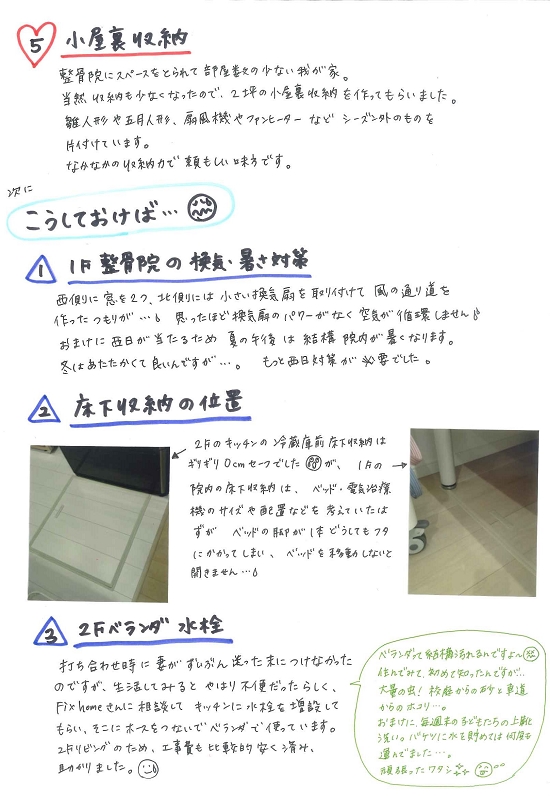 5 小屋裏収納
整骨院にスペースをとられて部屋数の少ない我が家。
当然収納も少なくなったので、2坪の小屋裏収納を作ってもらいました。
雛人形や五月人形、扇風機やファンヒーターなどシーズンオフのものを
片付けています。
なかなかの収納力で頼もしい味方です。
次に
こうしておけば…
1 1F整骨院の換気・暑さ対策
西側に窓を2つ、北側には小さい換気扇を取り付けて風の通り道を
作ったつもりが…。思ったほど換気扇のパワーがなく空気が循環しません
おまけに西日が当たるため夏の午後は結構院内が暑くなります。
冬はあたたかくて良いんですが…。もっと西日対策が必要でした。
2 床下収納の位置
2Fのキッチンの冷蔵庫前床下収納は
ギリギリ0cmセーフでしたが、1Fの
院内の床下収納は、ベッド・電気治療
機のサイズや配置などを考えていたは
ずがベッドの脚が1本どうしてもフタ
にかかってしまい、ベッドを移動しないと
開きません…
3 2Fベランダ水栓
打ち合わせ時に妻がずいぶん迷った末につけなかった
のですが、生活してみるとやはり不便だったらしく、
Fix homeさんに相談してキッチンに水栓を増設して
もらい、そこにホースをつないでベランダで使っています。
2Fリビングのため、工事費も比較的安く済み、
助かりました。
ベランダって結構汚れるんですよ〜
住んでみて、初めて知ったんですが…
大量の虫！校庭からの砂と車道
からのホコリ…。
おまけに、毎週末の子どもたちの上靴
洗い。バケツに水を貯めては何度も
運んでました…。
頑張ったワタシ